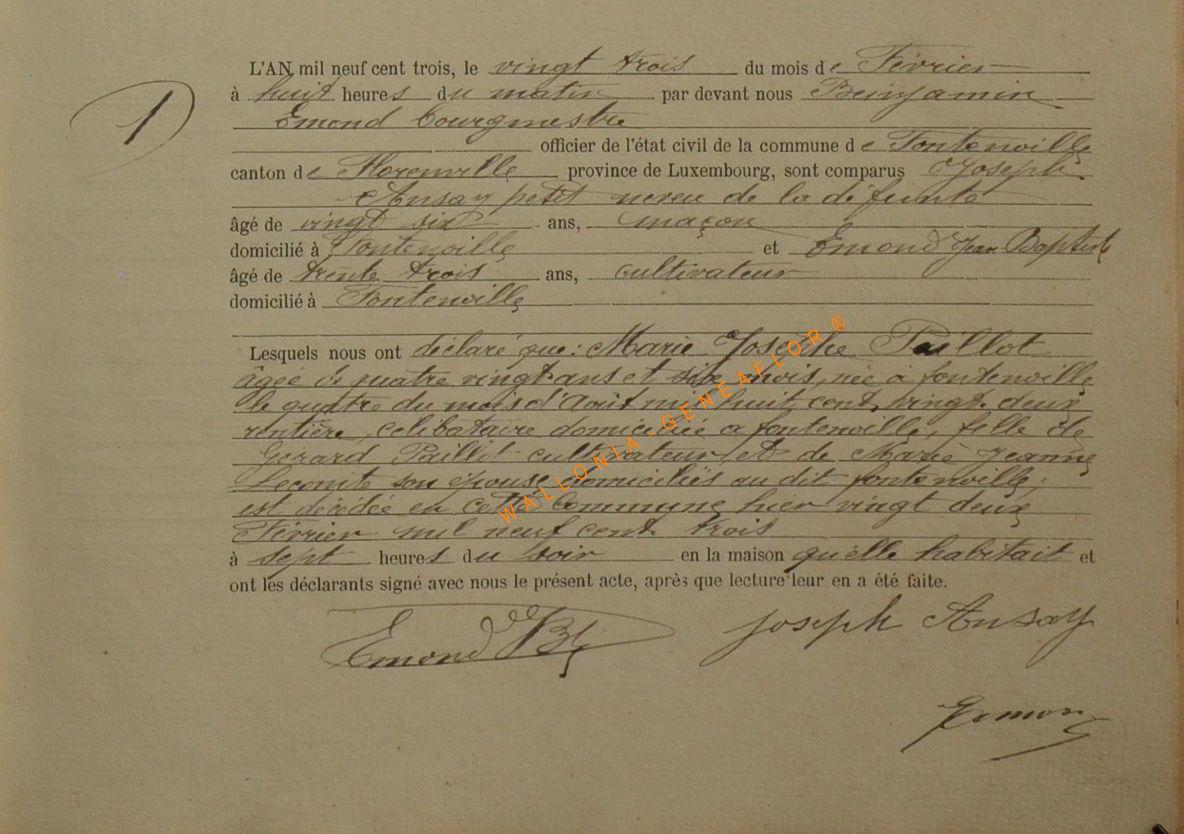 1
L'AN mil neuf cent trois, le vingt trois du mois de Février
à huit heures du matin par devant nous Benjamin
Emond Bourgmestre
officier de l'état civil de la commune de Fontenoille
canton de Florenville province de Luxembourg, sont comparus Joseph
Ansay petit neveu de la défunte
âgé de vingt six ans, maçon
domicilié à Fontenoille et Emond Jean Baptiste
âgé de trente trois ans, cultivateur
domicilié à Fontenoille
Lesquels nous ont déclaré que: Marie Josèphe Paillot
âgée de quatre vingt ans et six mois, née à fontenoille
le quatre du mois d'Août mil huit cent vingt deux
rentière, célibataire domiciliée à fontenoille, fille de
Gérard Paillot cultivateur et de Marie Jeanne
Lecomte son épouse domiciliés au dit fontenoille;
est décédée en cette Commune hier vingt deux
Février mil neuf cent trois
à sept heures du soir en la maison qu'elle habitait et
ont les déclarants signé avec nous le présent acte, après que lecture leur en a été faite.
Emond JBte Joseph Ansay
Emond
WALLONIA-GENEAFLOR ©